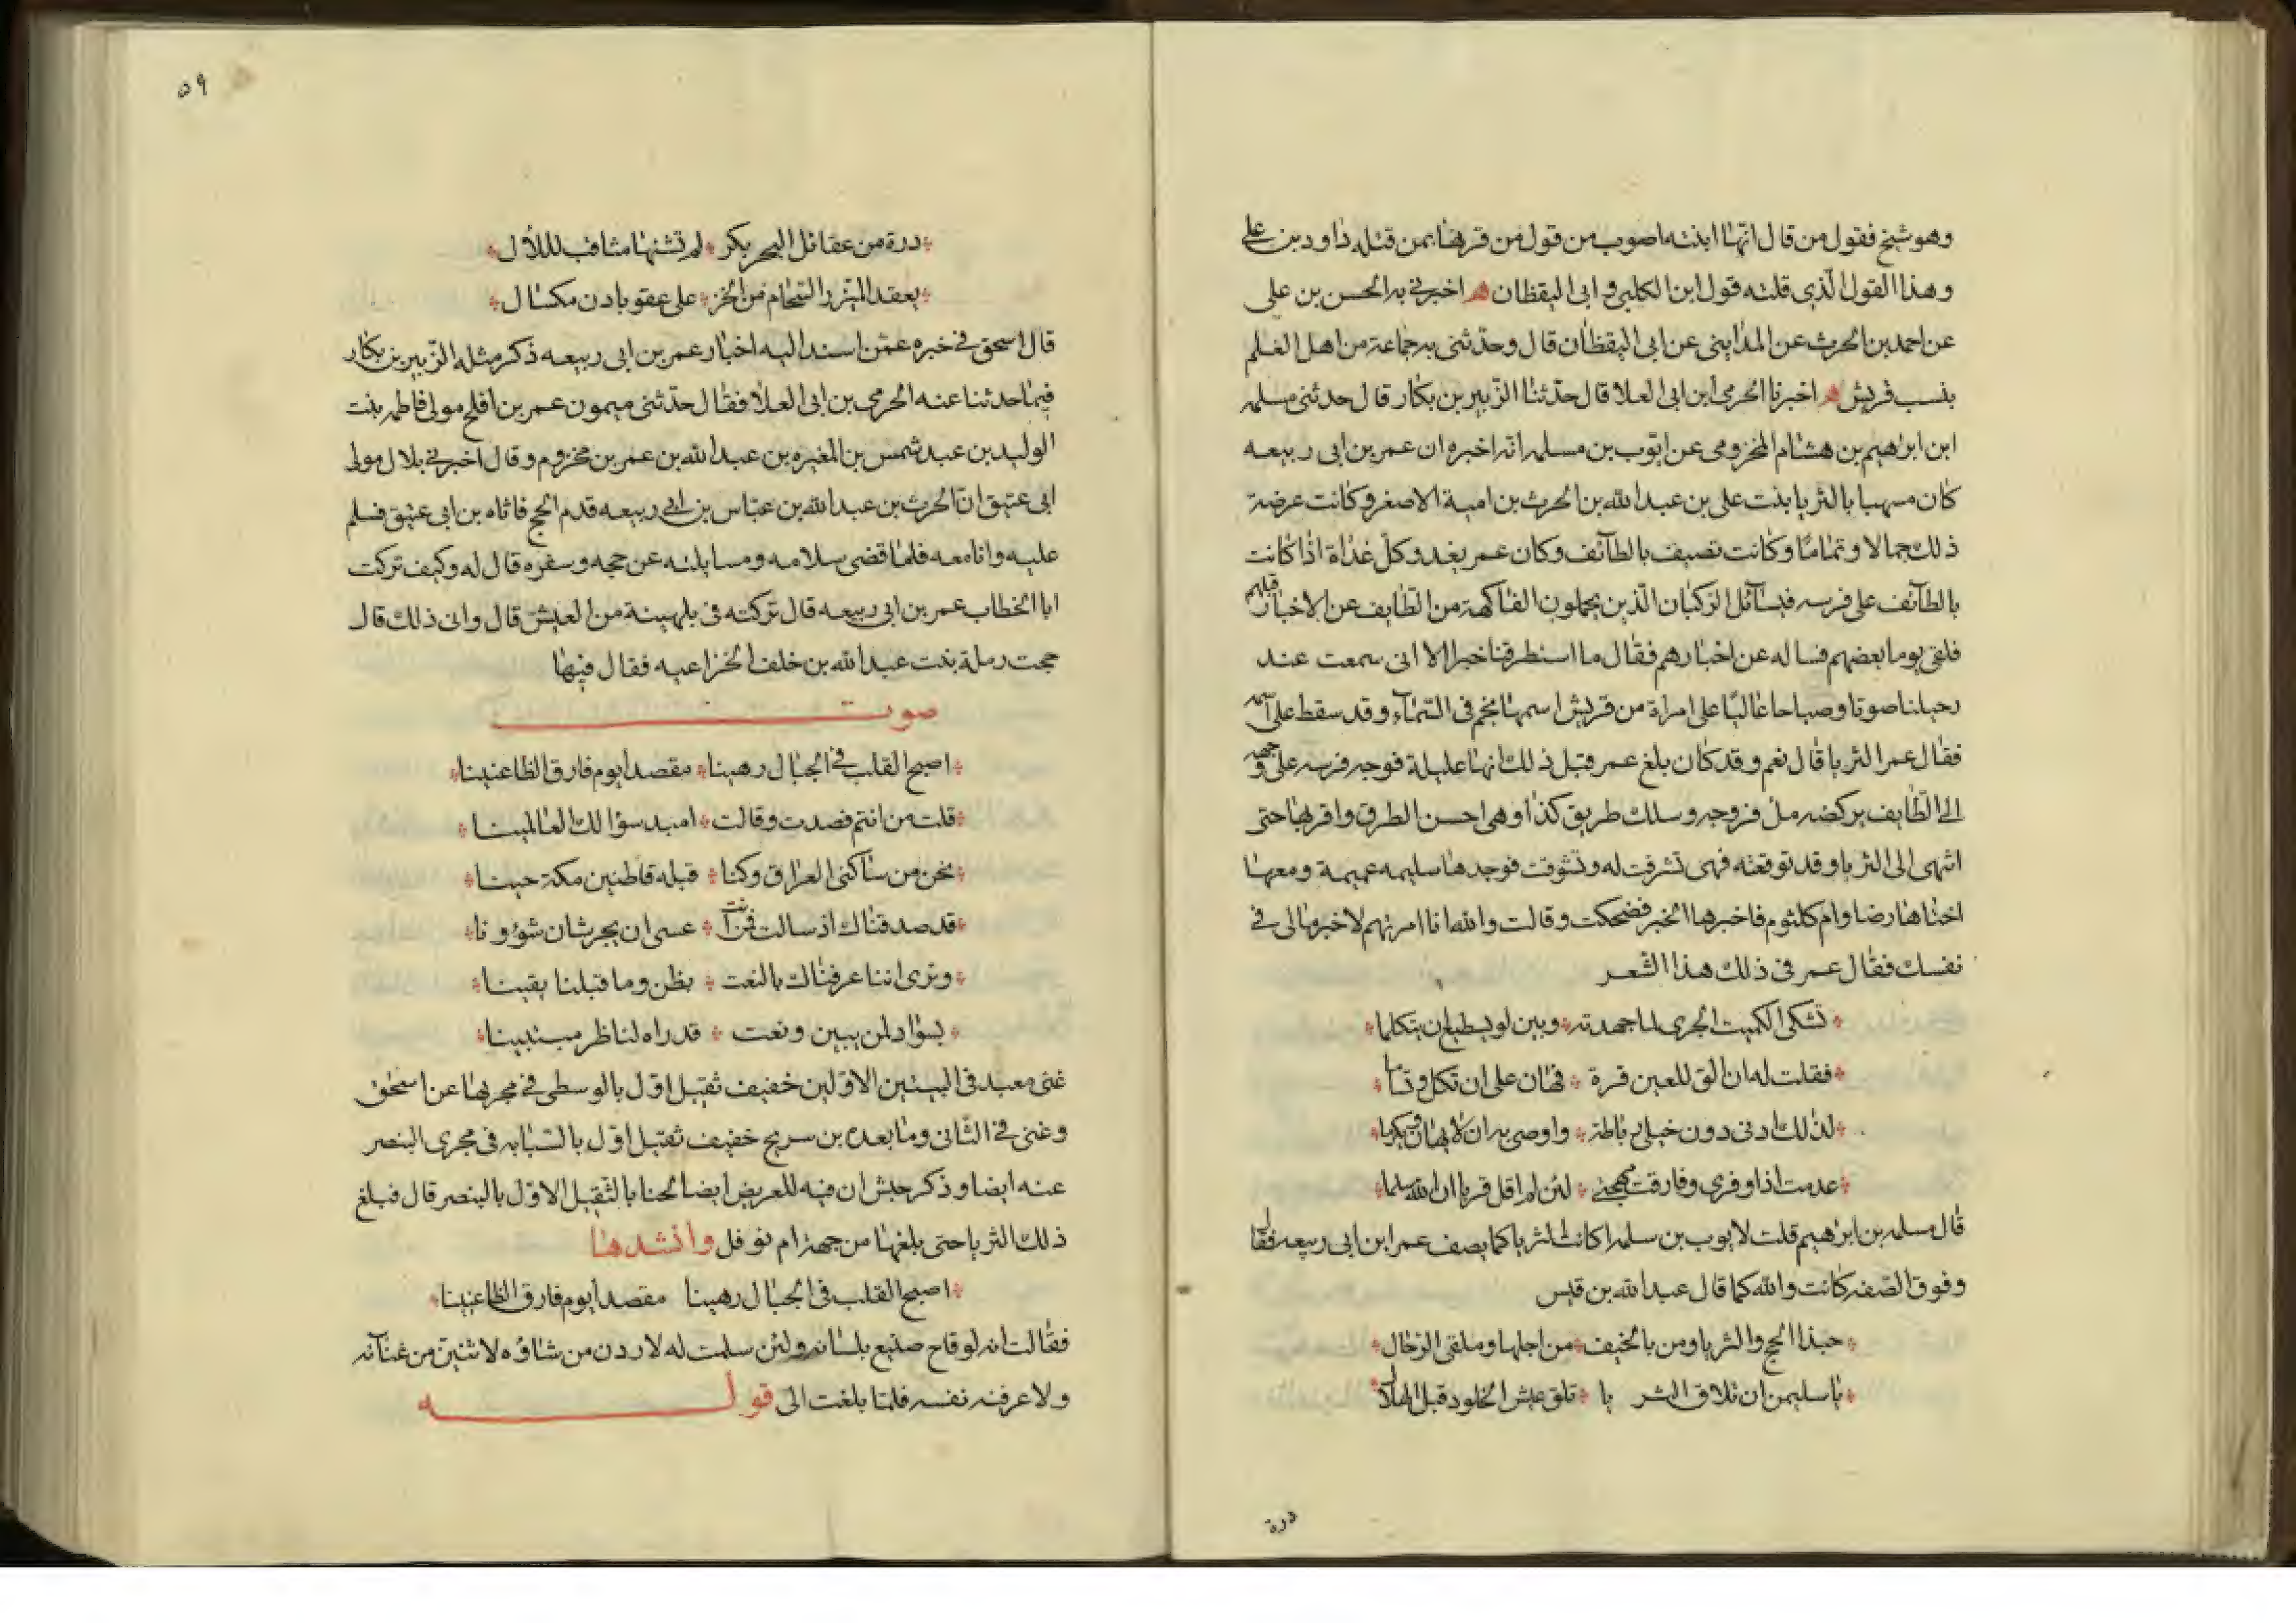 وهو شيخ فقول من قال انها ابنته اصوب من قول من قرنها بمن قتله داود بن علي
وهذا القول الذي قلته قول ابن الكلبي وابى اليقظان ه اخبرني به الحسن بن على
عن احمد بن الحرث عن المدايني عن ابى اليقظان قال وحدثني به جماعة من اهل العلم
بنسب قريش ه اخبرنا الحرمي ابن ابى العلا قال حدثنا الزبير بن بكار قال حدثنى مسلمه
ابن ابرهيم بن هشام المخزومى عن ايوب بن مسلمه انه اخبره ان عمر بن ابى ربيعه
كان مسهبا بالثريا بنت على بن عبد الله بن الحرث بن امية الاصغر وكانت عرضة
ذلك جمالا وتماما وكانت تصيف بالطآئف وكان عمر يغدو كل غداة اذا كانت
بالطآئف على فرسه فيسآئل الركبان الذين يحملون الفاكهة من الطايف عن الاخبار قلهم
فلقى يوما بعضهم فساله عن اخبارهم فقال ما استطرفنا خبرا الا انى سمعت عند
رحيلنا صوتا وصياحا عاليا على امراة من قريش اسمها نجم فى السماء وقد سقط على اسمه
فقال عمر الثريا قال نعم وقد كان بلغ عمر قبل ذلك انها عليلة فوجه فرسه على وجهه
الى الطايف يركضه مل فروجه وسلك طريق كذا وهى احسن الطرق واقربها حتى
انتهى الى الثريا وقد توقعته فهى تشرفت له وتشوفت فوجدها سليمه عميمة ومعها
اختاها رضا وام كلثوم فاخبرها الخبر فضحكت وقالت والله انا امرتهم لاخبر مالى فى
نفسك فقال عمر فى ذلك هذا الشعر
تشكى الكميت الجرى لما جهدته * وبين لو يسطيع ان يتكلما
فقلت له ان الق للعين قرة * فهان على ان تكل وتساما
لذلك ادنى دون خيلى رباطه * واوصى به ان لا يهان ويكرما
عدمت اذا وفرى وفارقت مهجتي * لئن لم اقل قربا ان الله سلما
قال مسلمه بن ابرهيم قلت لايوب بن سلمه اكانت الثريا كما يصف عمر ابن ابى ربيعه فقال
وفوق الصفه كانت والله كما قال عبد الله بن قيس
حبذا الحج والثريا ومن بالخيف * من اجلها وملقى الرحال
يا سليمن ان تلاق الثر يا * تلق عيش الخلود قبل الهلال
درة
٥٩
درة من عقائل البحر بكر * لم تشنها مثاقب للالأل
يعقد المئزر السخام من الخز * على عقو بادن مكسال
قال اسحق فى خبره عمن اسند اليه اخبار عمر بن ابى ربيعه ذكر مثله الزبير بن بكار
فيما حدثنا عنه الحرمى بن ابى العلا فقال حدثنى ميمون عمر بن افلح مولى فاطمه بنت
الوليد بن عبد شمس بن المغيره بن عبد الله بن عمر بن مخزوم وقال اخبرني بلال مولى
ابى عتيق ان الحرث بن عبد الله بن عباس بن ابى ربيعه قدم الحج فاتاه بن ابى عتيق فسلم
عليه وانا معه فلما قضى سلامه ومسايلته عن حجه وسفره قال له وكيف تركت
ابا الخطاب عمر بن ابى ربيعه قال تركته فى بلهينة من العيش قال وانى ذلك قال
حجت رملة بنت عبد الله بن خلف الخزاعيه فقال فيها
صوت
اصبح القلب فى الجبال رهينا * مقصدا يوم فارق الظاعنينا
قلت من انتم فصدت وقالت * امبد سؤالك العالمينا
نحن من ساكنى العراق وكنا * قبله قاطنين مكة حينا
قد صدقناك اذ سالت فمن انت * عسى ان يجر شان شؤونا
ونرى اننا عرفناك بالنعت * بظن وما قبلنا يقينا
بسواد لمن يبين ونعت * قد راه لناظر مستبينا
غنى معبد فى البيتين الاولين خفيف ثقيل اول بالوسطى فى مجرىها عن اسحق
وغنى فى الثانى وما بعده بن سريج خفيف ثقيل اول بالسبابه فى مجرى البنصر
عنه ايضا وذكر حبش ان فيه للعريض ايضا لحنا بالثقيل الاول بالبنصر قال فبلغ
ذلك الثريا حتى بلغها من جهة ام نوفل وانشدها
اصبح القلب فى الجبال رهينا مقصدا يوم فارق الظاعنينا
فقالت انه لوقاح صنيع بلسانه ولئن سلمت له لاردن من شاؤه لاثنين من عنآنه
ولاعرفنه نفسه فلما بلغت الى قوله